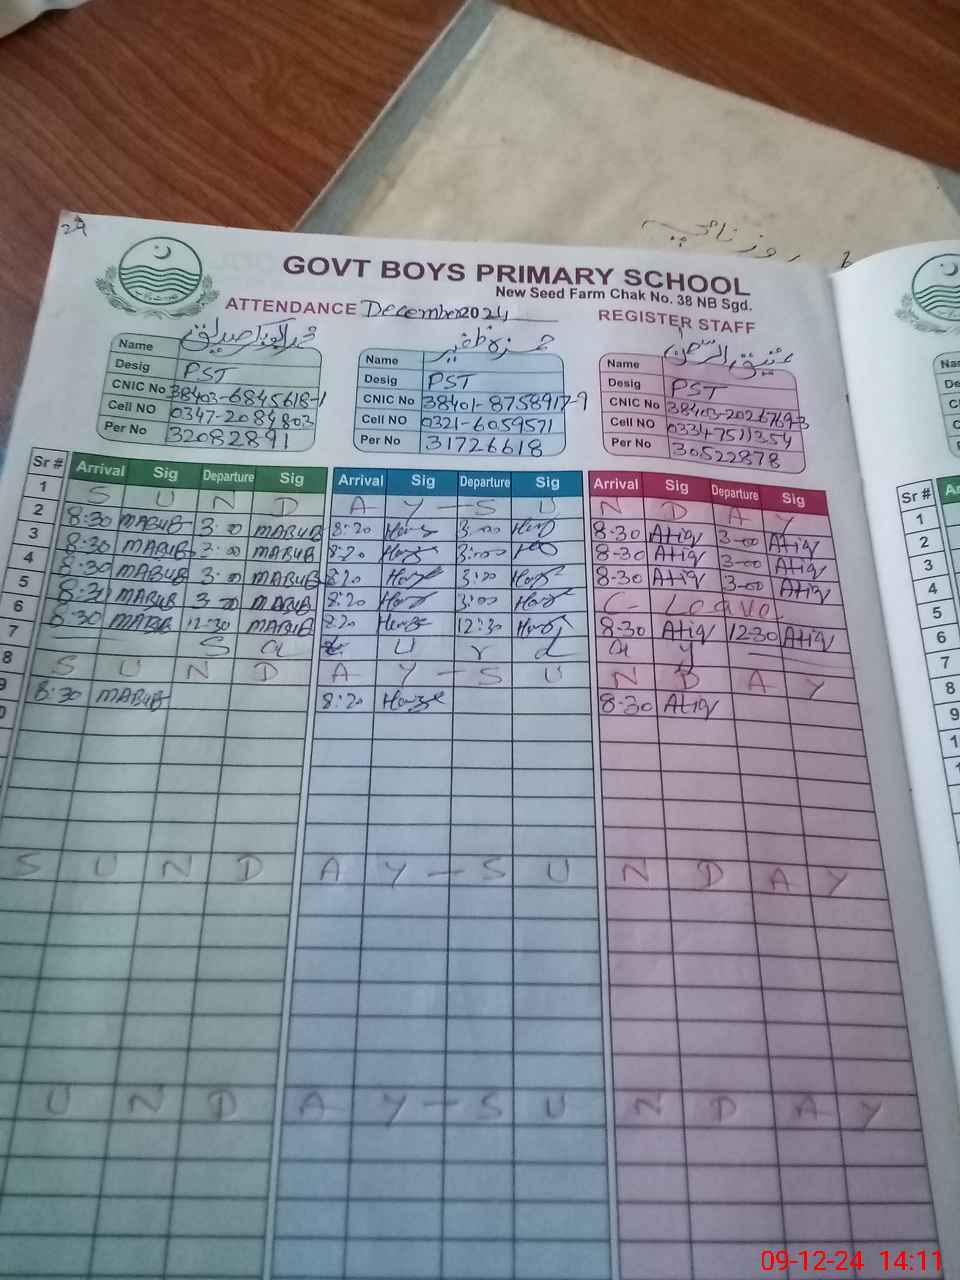 29
روزنامچہ
GOVT BOYS PRIMARY SCHOOL
New Seed Farm Chak No. 38 NB Sgd.
ATTENDANCE December 2024 REGISTER STAFF
Name
Desig PST
CNIC No 38403-6845618-1
Cell NO 0347-2084803
Per No 32082891
Name حمزہ ظہیر
Desig PST
CNIC No 38401-8758917-9
Cell NO 0321-6059571
Per No 31726618
Name عتیق الرحمن
Desig PST
CNIC No 38403-2026769-3
Cell NO 0334-7511354
Per No 30522878
Sr # Arrival Sig Departure Sig Arrival Sig Departure Sig Arrival Sig Departure Sig
1 S U N D A Y - S U N D A Y
2 8:30 MABUB 3:00 MABUB 8:20 3:00 8-30 Atiq 3-00 Atiq
3 8:30 MABUB 3:00 MABUB 8:20 3:00 8-30 Atiq 3-00 Atiq
4 8:30 MABUB 3:00 MABUB 8:20 3:00 8-30 Atiq 3-00 Atiq
5 8:30 MABUB 3:00 MABUB 8:20 3:00 C- Leave
6 8:30 MABUB 12:30 MABUB 8:20 12:30 8-30 Atiq 12-30 Atiq
7 S a t u r d a y
8 S U N D A Y - S U N D A Y
9 8:30 MABUB 8:20 8-30 Atiq
S U N D A Y - S U N D A Y
U N D A Y - S U N D A Y
Sr #
1
2
3
4
5
6
7
8
9
09-12-24 14:11